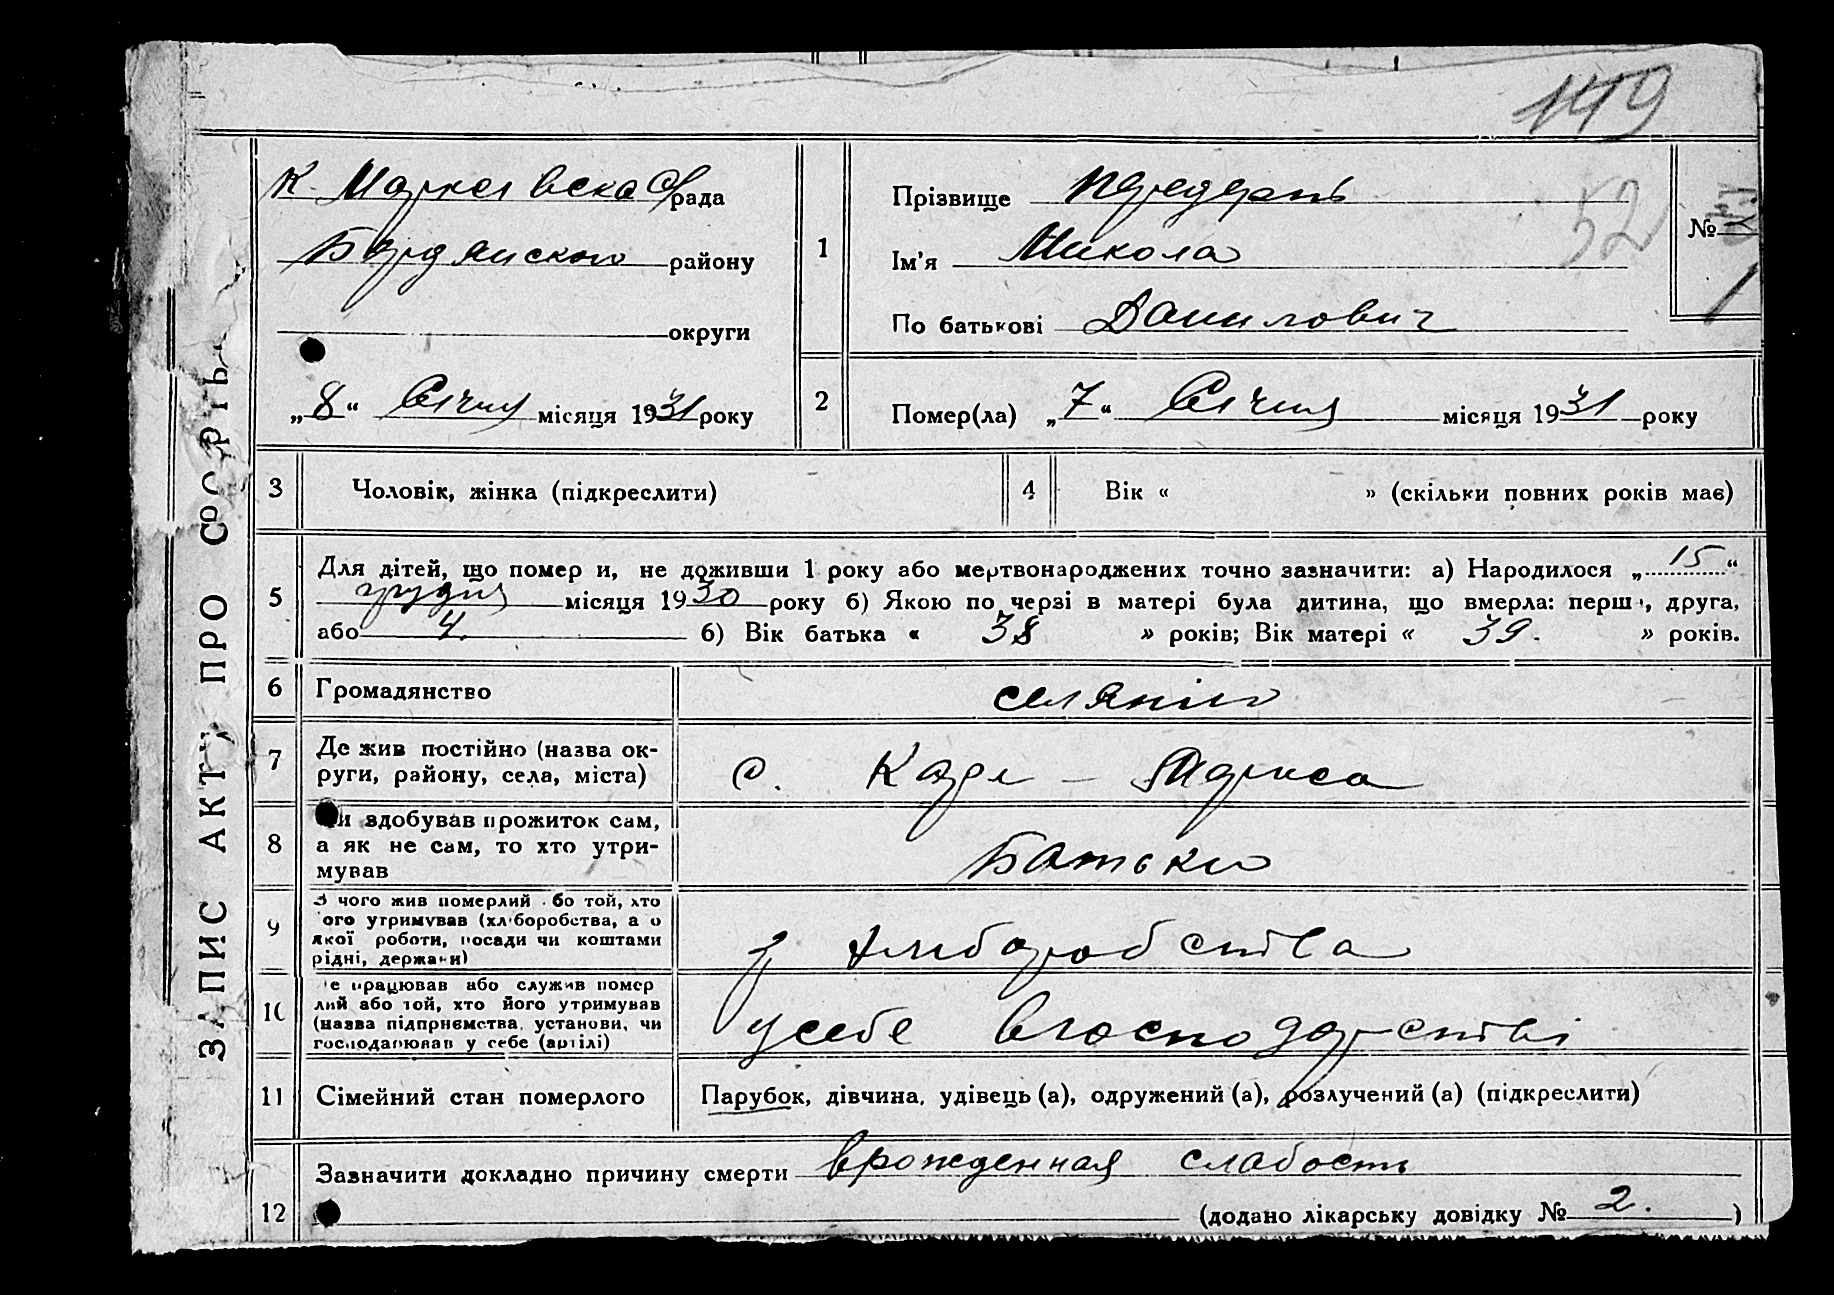 149
К. Марксівська С/рада
Бердянського району
округи
„8“ Січня місяця 1931 року
1
Прізвище
Ім'я Микола
По батькові Данилович
52
№
1
2
Помер(ла) „7“ Січня місяця 1931 року
ЗАПИС АКТУ ПРО СМЕРТЬ
3 Чоловік, жінка (підкреслити)
4 Вік « » (скільки повних років має)
5 Для дітей, що помер и, не доживши 1 року або мертвонароджених точно зазначити: а) Народилося „15“
грудня місяця 1930 року б) Якою по черзі в матері була дитина, що вмерла: перш, друга,
або 4. б) Вік батька « 38 » років; Вік матері « 39. » років.
6 Громадянство селянин
7 Де жив постійно (назва ок-
руги, району, села, міста) с. Карл - Маркса
8 и здобував прожиток сам,
а як не сам, то хто утри-
мував Батьки
9 З чого жив померлий бо той, хто
ого утримував (хліборобства, а о
якої роботи, посади чи коштами
рідні, держави) з хліборобства
10 е працював або служив помер
лий або той, хто його утримував
(назва підприємства, установи, чи
господарював у себе (артілі) у себе в господарстві
11 Сімейний стан померлого Парубок, дівчина, удівець (а), одружений (а), розлучений (а) (підкреслити)
12 Зазначити докладно причину смерти врожденная слабость
(додано лікарську довідку № 2.)